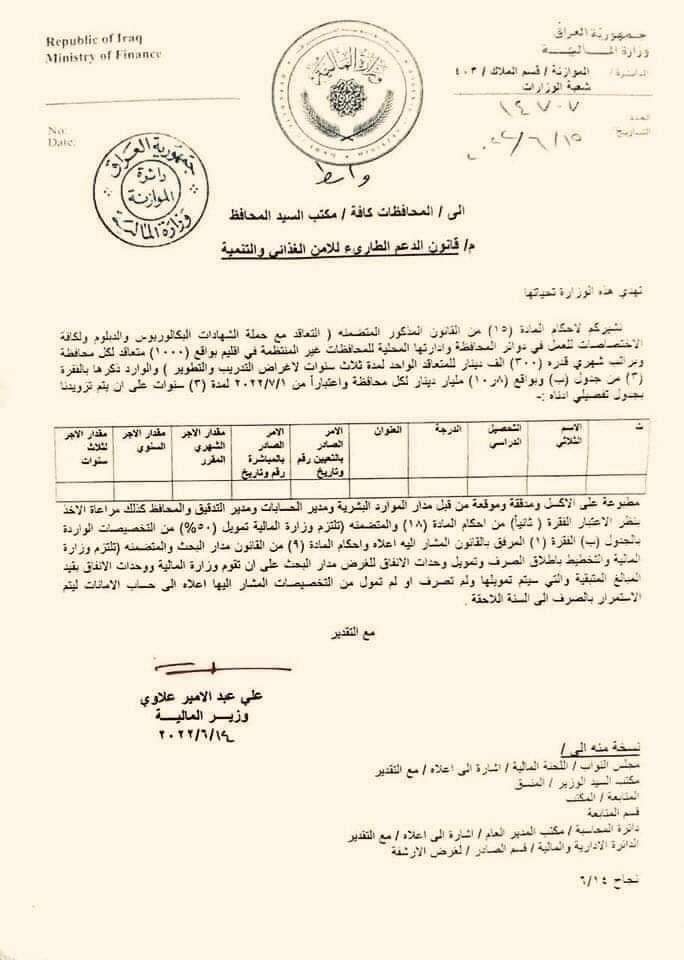 Republic of Iraq
Ministry of Finance
No:
Date:
جمهورية العراق
وزارة المالية
الدائرة / الموازنة / قسم الملاك / ٤٠٣
شعبة الوزارات
العدد ١٤٧٠٧
التاريخ ٢٠٢٢/٦/١٥
وزارة المالية
جمهورية العراق
دائرة
الموازنة
وزارة المالية
واسط
الى / المحافظات كافة / مكتب السيد المحافظ
م/ قانون الدعم الطاريء للامن الغذائي والتنمية
تهدي هذه الوزارة تحياتها
نشيركم لاحكام المادة (١٥) من القانون المذكور المتضمنه ( التعاقد مع حملة الشهادات البكالوريوس والدبلوم ولكافة
الاختصاصات للعمل في دوائر المحافظة وادارتها المحلية للمحافظات غير المنتظمة في اقليم بواقع (١٠٠٠) متعاقد لكل محافظة
وبراتب شهري قدره (٣٠٠) الف دينار للمتعاقد الواحد لمدة ثلاث سنوات لاغراض التدريب والتطوير ) والوارد ذكرها بالفقرة
(٣) من جدول (ب) وبواقع (١٠٫٨) مليار دينار لكل محافظة واعتباراً من ٢٠٢٢/٧/١ لمدة (٣) سنوات على ان يتم تزويدنا
بجدول تفصيلي ادناه :-
ت | الاسم الثلاثي | التحصيل الدراسي | الدرجة | العنوان | الامر الصادر بالتعيين رقم وتاريخ | الامر الصادر بالمباشرة رقم وتاريخ | مقدار الاجر الشهري المقرر | مقدار الاجر السنوي | مقدار الاجر لثلاث سنوات
مطبوعة على الاكسل ومدققة وموقعة من قبل مدار الموارد البشرية ومدير الحسابات ومدير التدقيق والمحافظ كذلك مراعاة الاخذ
بنظر الاعتبار الفقرة ( ثانياً) من احكام المادة (١٨) والمتضمنه (تلتزم وزارة المالية تمويل (٥٠%) من التخصيصات الواردة
بالجدول (ب) الفقرة (١) المرفق بالقانون المشار اليه اعلاه واحكام المادة (٩) من القانون مدار البحث والمتضمنه (تلتزم وزارة
المالية والتخطيط باطلاق الصرف وتمويل وحدات الانفاق للغرض مدار البحث على ان تقوم وزارة المالية ووحدات الانفاق بقيد
المبالغ المتبقية والتي سيتم تمويلها ولم تصرف او لم تمول من التخصيصات المشار اليها اعلاه الى حساب الامانات ليتم
الاستمرار بالصرف الى السنة اللاحقة .
مع التقدير
علي عبد الامير علاوي
وزير المالية
٢٠٢٢/٦/١٤
نسخة منه الى /
مجلس النواب / اللجنة المالية / اشارة الى اعلاه / مع التقدير
مكتب السيد الوزير / المنسق
المتابعة / المكتب
قسم المتابعة
دائرة المحاسبة / مكتب المدير العام / اشارة الى اعلاه / مع التقدير
الدائرة الادارية والمالية / قسم الصادر / لغرض الارشفة
نجاح ٦/١٤